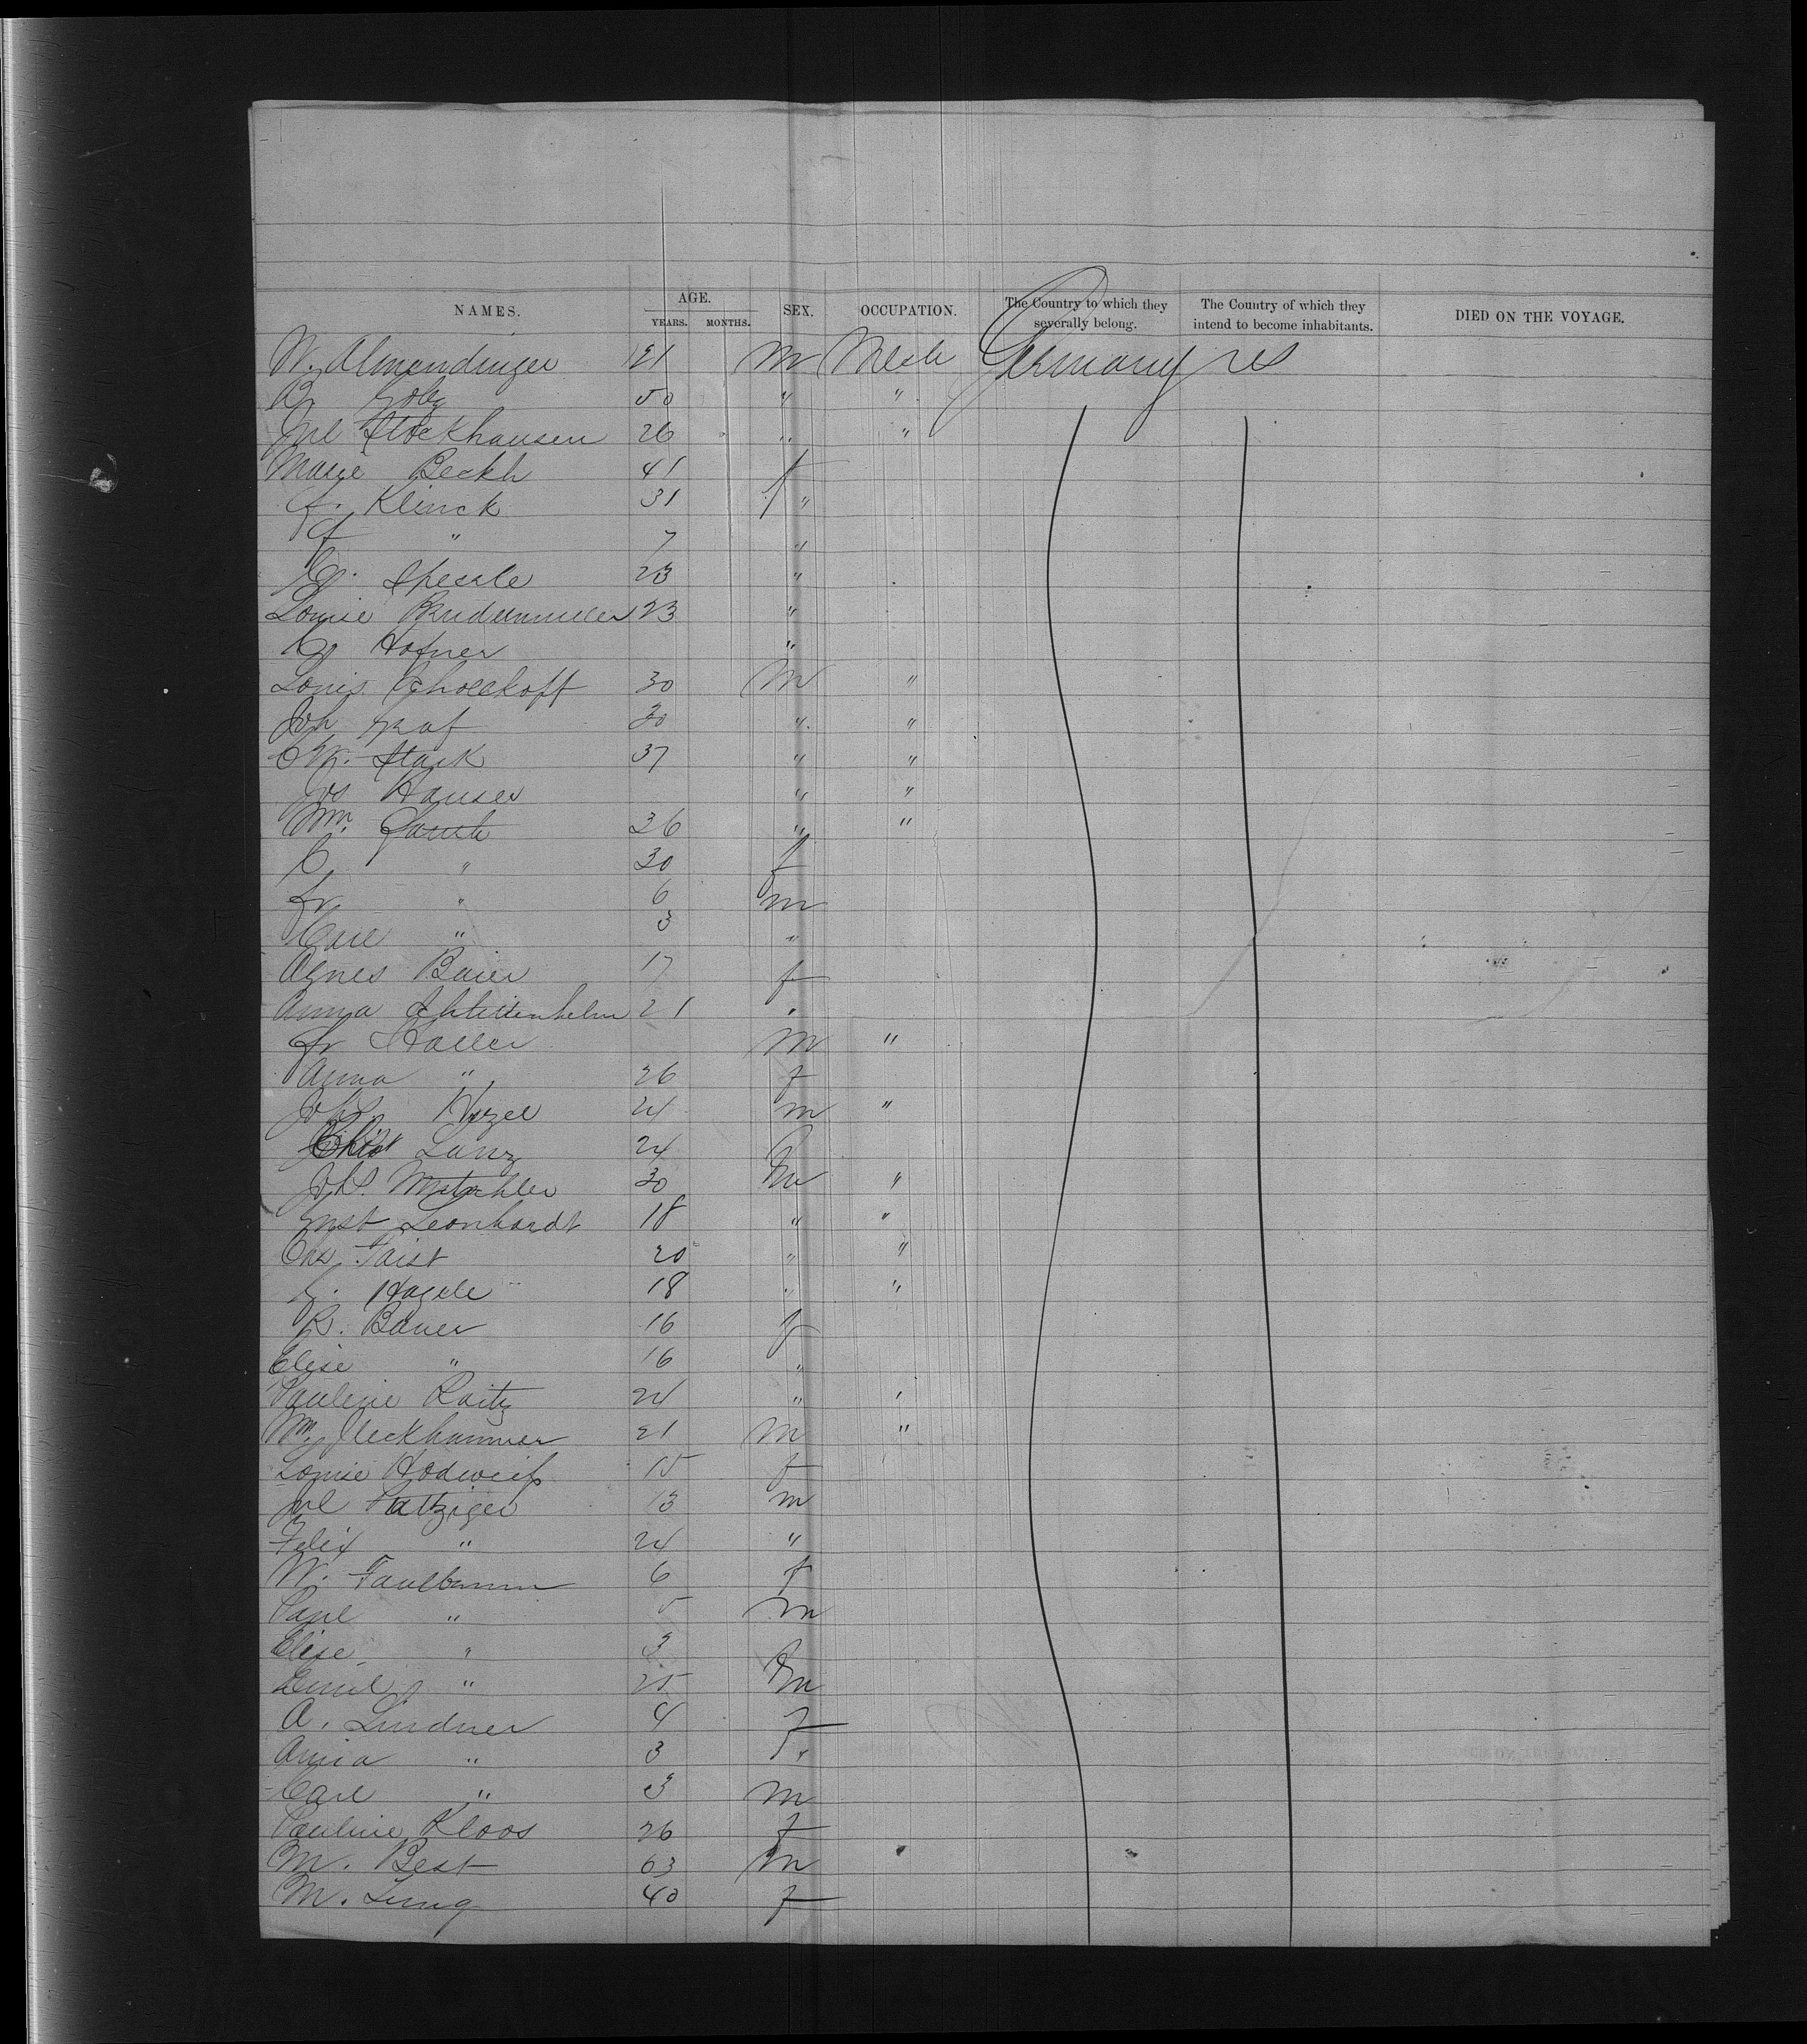 NAMES. AGE. YEARS. MONTHS. SEX. OCCUPATION. The Country to which they severally belong. The Country of which they intend to become inhabitants. DIED ON THE VOYAGE.
W. Almendinger 21 m Mech Germany US
50 " "
Jul Stockhausen 26 " "
Marie Beckh 41 f
f. Klinck 31 "
f " 7 "
C. Spesele 23 "
Louise 23 "
C Hofner "
Louis Schoelkoff 30 m "
Joh Graf 30 " "
C W. Stark 37 " "
Jos Hauser " "
Wm. 36 " "
C " 30 f
Fr " 6 m
Carl " 3 "
Agnes Baier 17 f
Anna Schlettenhelm 21 "
Fr Haller m "
Anna " 26 f
Johs Hizel 24 m "
Christ Lanz 24 f
Johs. 30 m "
Ernst Leonhardt 18 " "
Chs Faist 20 " "
G. Hagele 18 " "
R. Bauer 16 f
Elise " 16 "
Pauline Raitz 24 " "
Wm. Fleckhammer 21 m "
Louise Hodweiss 15 f
Jul Faltziger 13 m
Felix " 24 "
W. Faulbaum 6 f
Paul " 5 m
Elise " 3 f
Emil " 25 m
A. Lindner 4 f
Anna " 3 f
Carl " 3 m
Pauline Kloos 26 f
M. Best 63 m
M. Lung 40 f